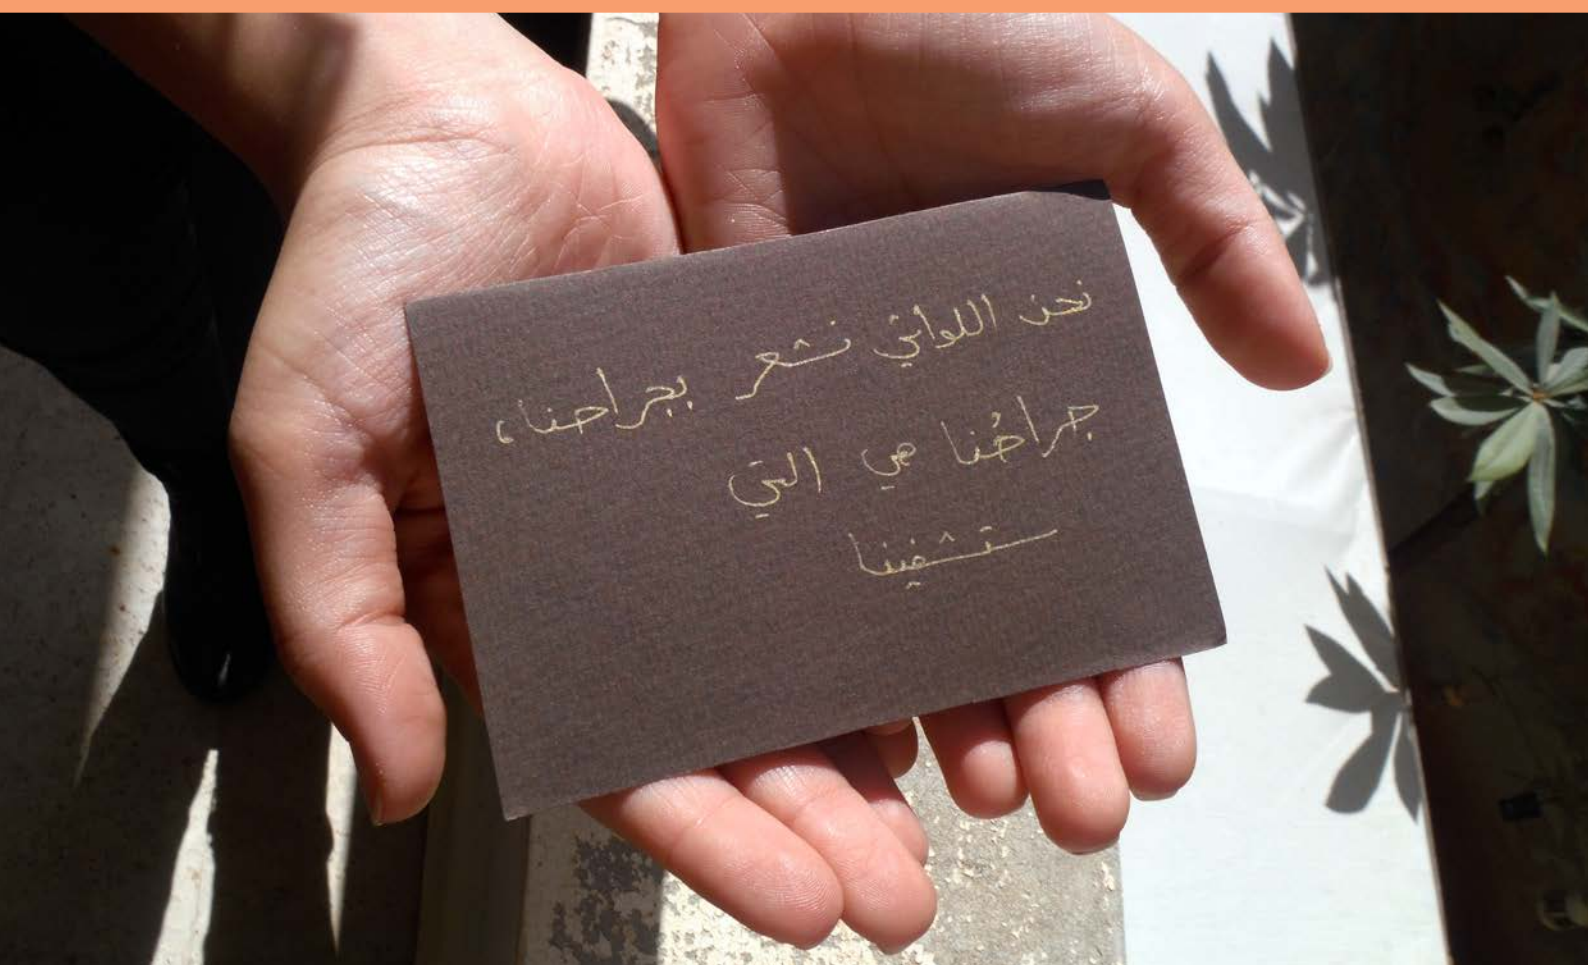 نحن اللواتي نشعر بجراحنا،
جراحُنا هي التي
ستشفينا